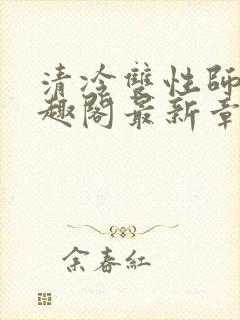 清冷雙性師
趣閣最新章
余春紅